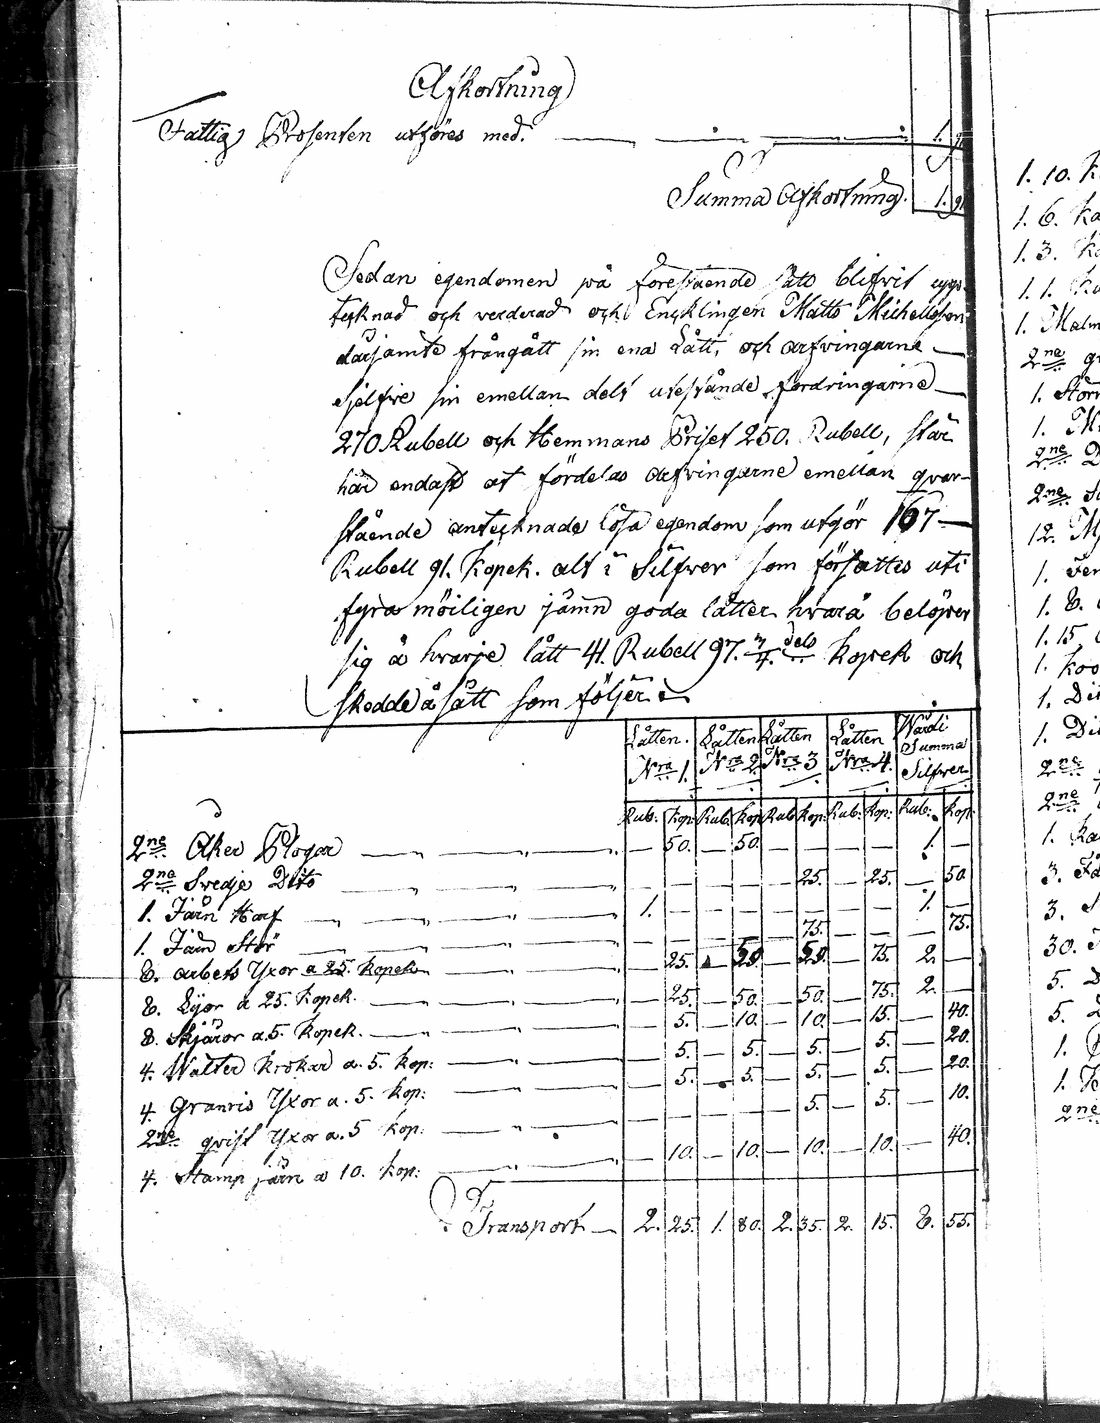 Afkortning
Fattig Prosenten utföres med. 1. 91
Summa Afkortning. 1. 91
Sedan egendomen på förestående sätt blifvit upp-
teknad och verderad och Encklingen Matts Michellsson
därjämte frångått sin ena Lått, och arfvingarne
sjelfve sin emellan delt utestående fordringarne
270 Rubell och Hemmans Priset 250. Rubell, står
här endast at fördelas arfvingarne emellan qvar-
stående antecknade lösa egendom som utgör 167
Rubell 91. Kopek. alt i Silfwer som författes uti
fyra möiligen jämn goda låtter hvarå belöper
sig å hvarje lått 41. Rubell 97. 3/4 dels Kopek och
skedde å sätt som följer
Låtten. Låtten Låtten Låtten Wärdi
Nro 1. Nro 2 Nro 3 Nro 4. Summa Silfwer
Rub: kop: Rub. kop Rub kop: Rub. kop: Rub: kop.
2ne Åker Plogar — 50. — 50. 1. —
2ne Svedje Dito — — — — 25. — 25. — 50
1. Järn Harf 1. — — — — — — 1. —
1. Järn Stör — — — — 75. — — — 75.
8. arbets Yxor a 25. kopek — 25. — 50. — 50. — 75. 2. —
8. Lijor a 25. Kopek. — 25. — 50. — 50. — 75. 2. —
8. Skjäror a. 5. Kopek. — 5. — 10. — 10. — 15. — 40.
4. Walter krokar a. 5. kop: — 5. — 5. — 5. — 5. — 20.
4. Granris Yxor a. 5. kop: — 5. — 5. — 5. — 5. — 20.
2ne qvist Yxor a. 5 kop: — — — — 5. — 5. — 10.
4. Stamp järn a 10. kop: — 10. — 10. — 10. — 10. — 40.
Transport 2. 25. 1. 80. 2. 35. 2. 15. 8. 55.
1. 10.
1. 6.
1. 3.
1. 1.
1. Malm
2ne
1. Störr
1.
2ne
2ne
12.
1.
1. 8.
1. 15
1.
1.
1.
2ne
2ne
1.
3.
3.
30.
5.
5.
1.
1.
2ne